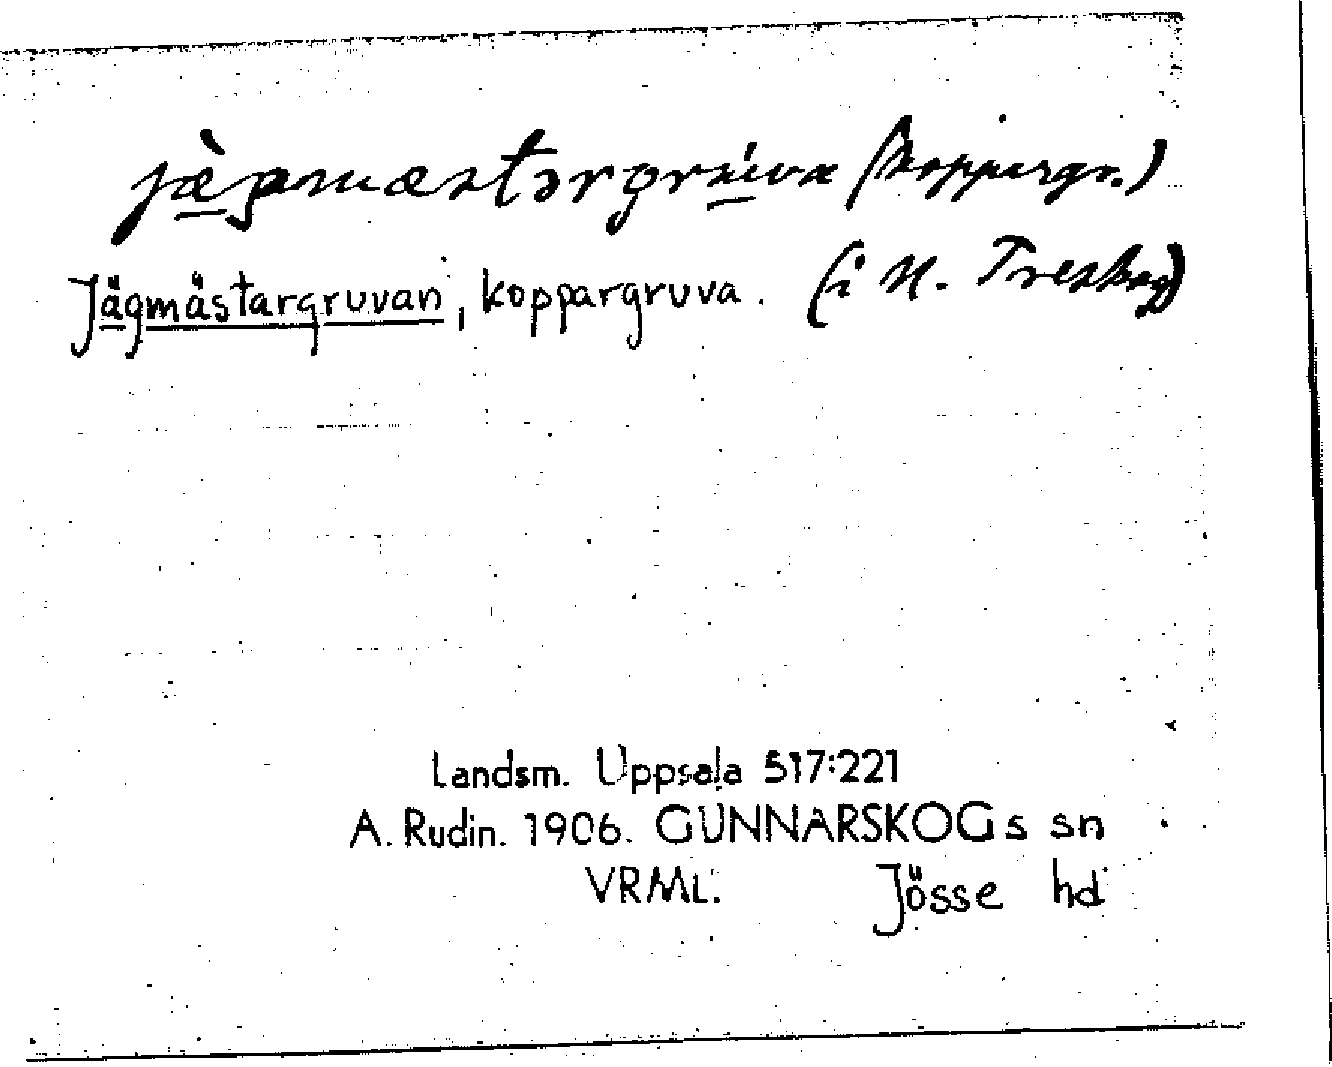 jæ̀gmæstərgrúvα (koppargr.)
Jägmästargruvan, koppargruva. (i N. Treskog)
Landsm. Uppsala 517:221
A. Rudin. 1906. GUNNARSKOGs sn
VRML. Jösse hd